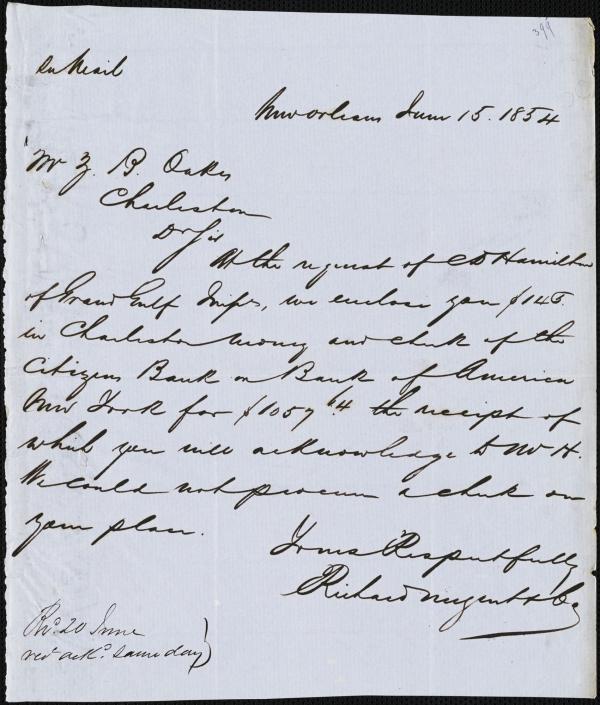 399
New Orleans June 15. 1854
Mr Z. B. Oakes
Charleston
Dr Sir
At the request of C D Hamilton
of Grand Gulf Missi, we enclose you $145.
in Charleston money and check of the
Citizens Bank on Bank of America
New York for $1057 64 the receipt of
which you will acknowledge to Mr H.
We could not procure a check on
your place.
Yours Respectfully
Richard Nugent & Co
20 June
red ackd. same day